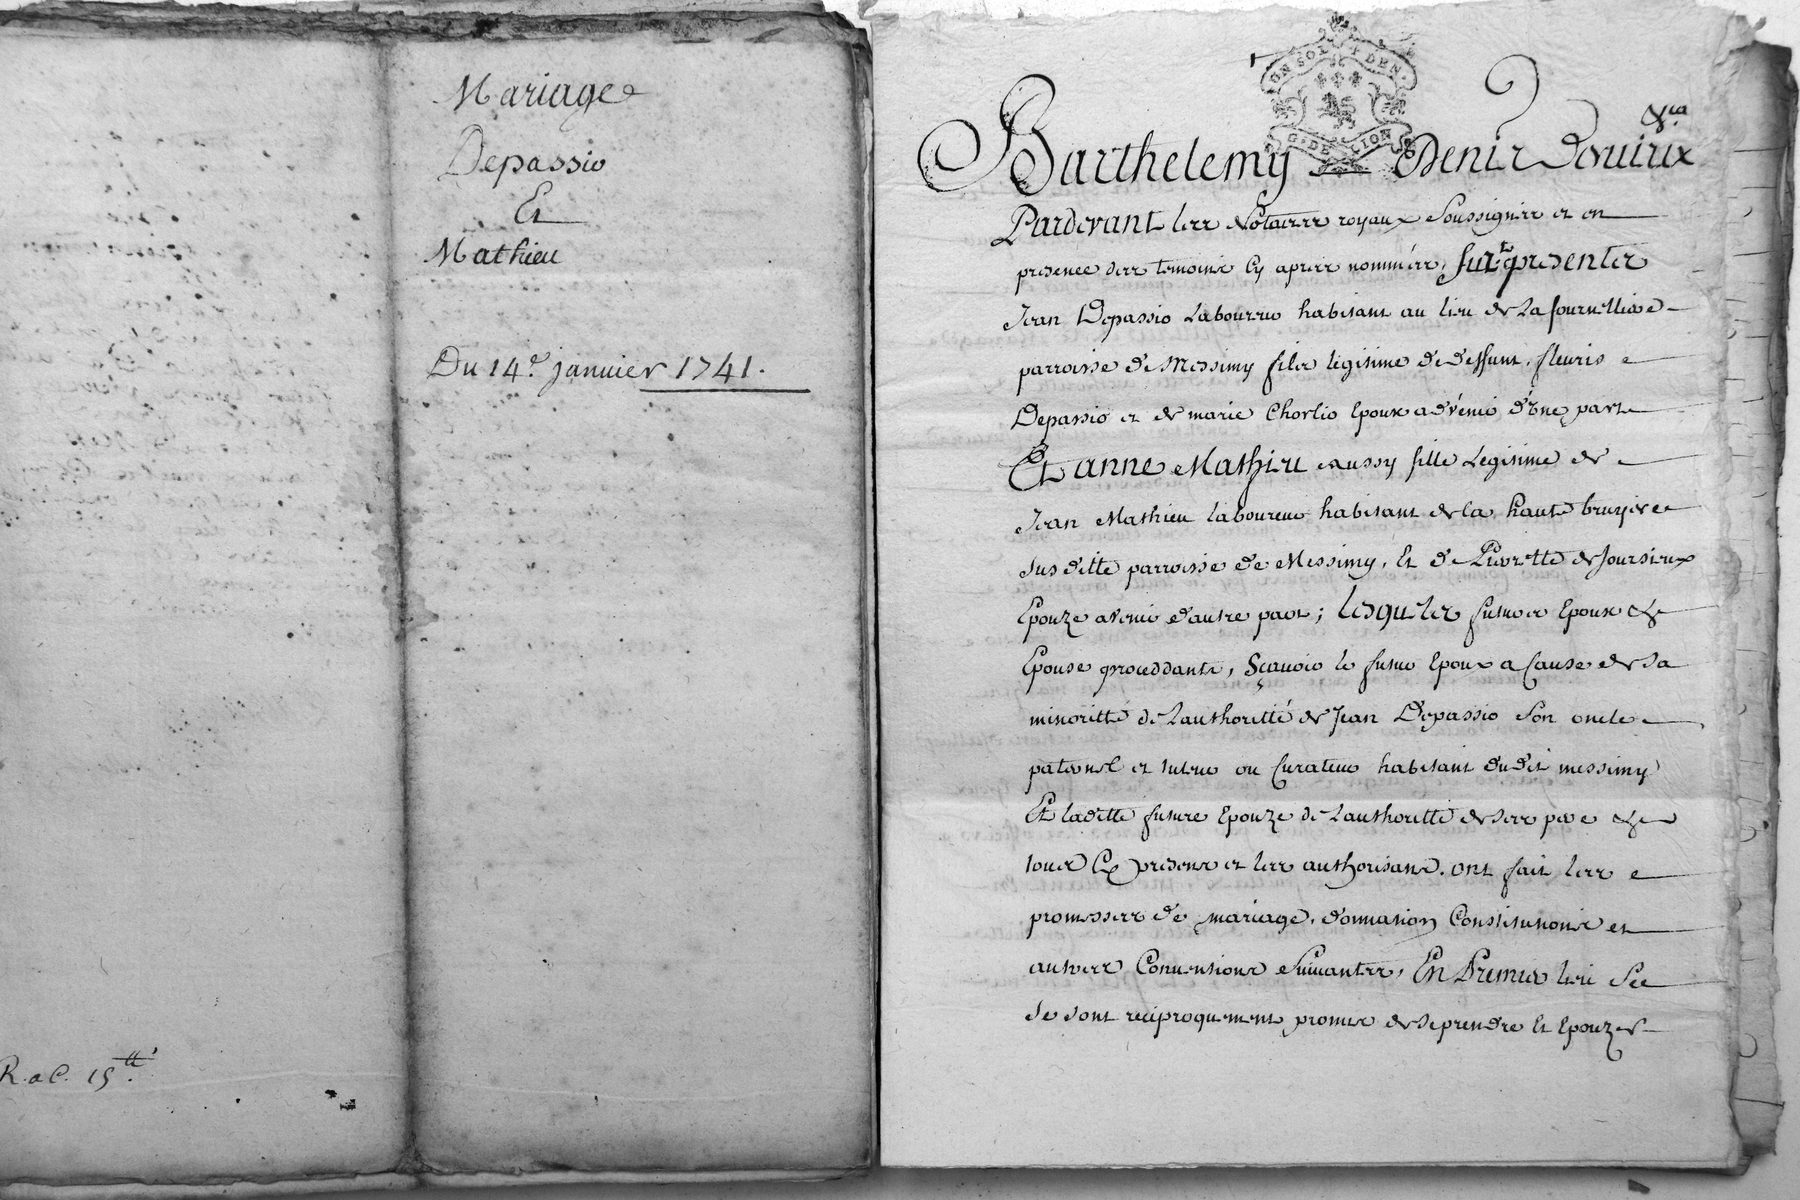 Mariage
Depassio
Et
Mathieu
Du 14e. janvier 1741.
R. a C. 15 tt
ON SOL DEN.
G. DE LION
Barthelemy Denis Devirieux &ca
Pardevant les Notaires royaux Soussignés et en
presence des temoins Cy apres nommés, furt presentes
Jean Depassio Laboureur habitant au lieu de La fournilliere
parroisse de Messimy fils legitime de deffunt fleuris
Depassio et de marie Chorlio Epoux advenir d'une part
Et anne Mathieu Aussy fille Legitime de
Jean Mathieu laboureur habitant de la haute bruyere
susditte parroisse de Messimy, Et de Pierrette de Joursieux
Epouze avenir d'autre part; lesquels futurs Epoux &
Epouse proceddants, Sçavoir le futur Epoux a Cause de sa
minoritté de Lauthoritté de Jean Depassio Son oncle
paternel et tuteur ou Curateur habitant dudit messimy
Et laditte future Epouze de Lauthoritté de ses pere &
tous Cy presents et les authorisants. ont fait les
promesses de mariage, donnation Constitutions et
autres Conventions Suivantes, En Premier lieu
se sont reciproquement promis de se prendre Et Epouzer